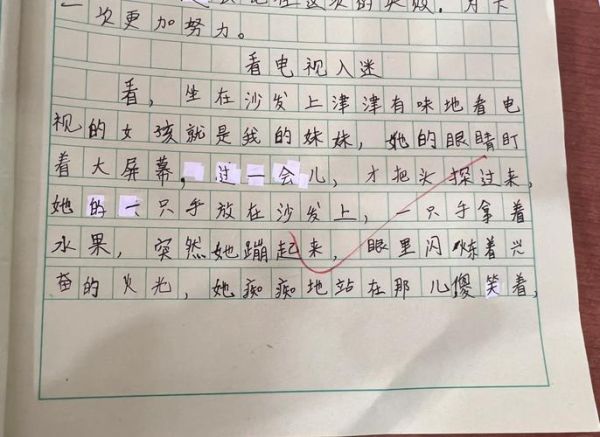 一次更加努力。
看电视入迷
看，坐在沙发上津津有味地看电
视的女孩就是我的妹妹，她的眼睛盯
着大屏幕，过一会儿，才把头探过来，
她的一只手放在沙发上，一只手拿着
水果，突然她蹦起来，眼里闪烁着兴
奋的火光，她痴痴地站在那儿傻笑着，